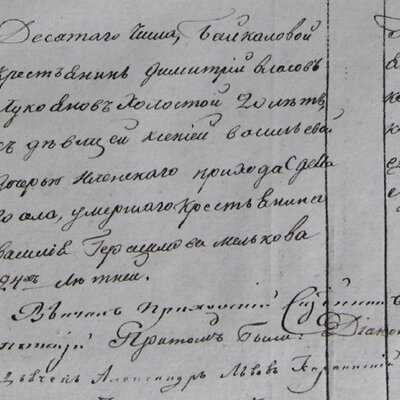 Десятаго числа, Байкаловой
крестьянинъ Димитрій Власовъ
Лукояновъ холостой 20 лѣтъ
съ дѣвицей Ксеніей Васильевой
дочерью прихода
умершаго крестьянина
Василія Герасимова Мелькова
24хъ лѣтней.
Вѣнчалъ Приходскій
Притомъ были: Діакон
Александръ Львовъ